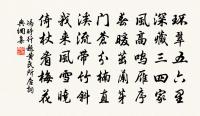 環翠五六星
深藏三四家
風高鳴雁序
春暖茁蘭芽
門巷分楠直
溪流帶竹斜
我來風雪晚
倚杖看梅花
馮時行題黃氏所居詞
典網集